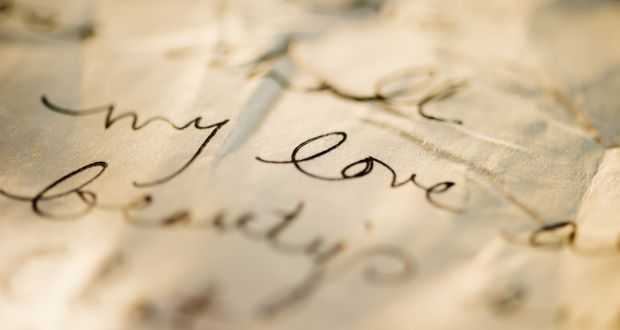 all
my love a
beauty